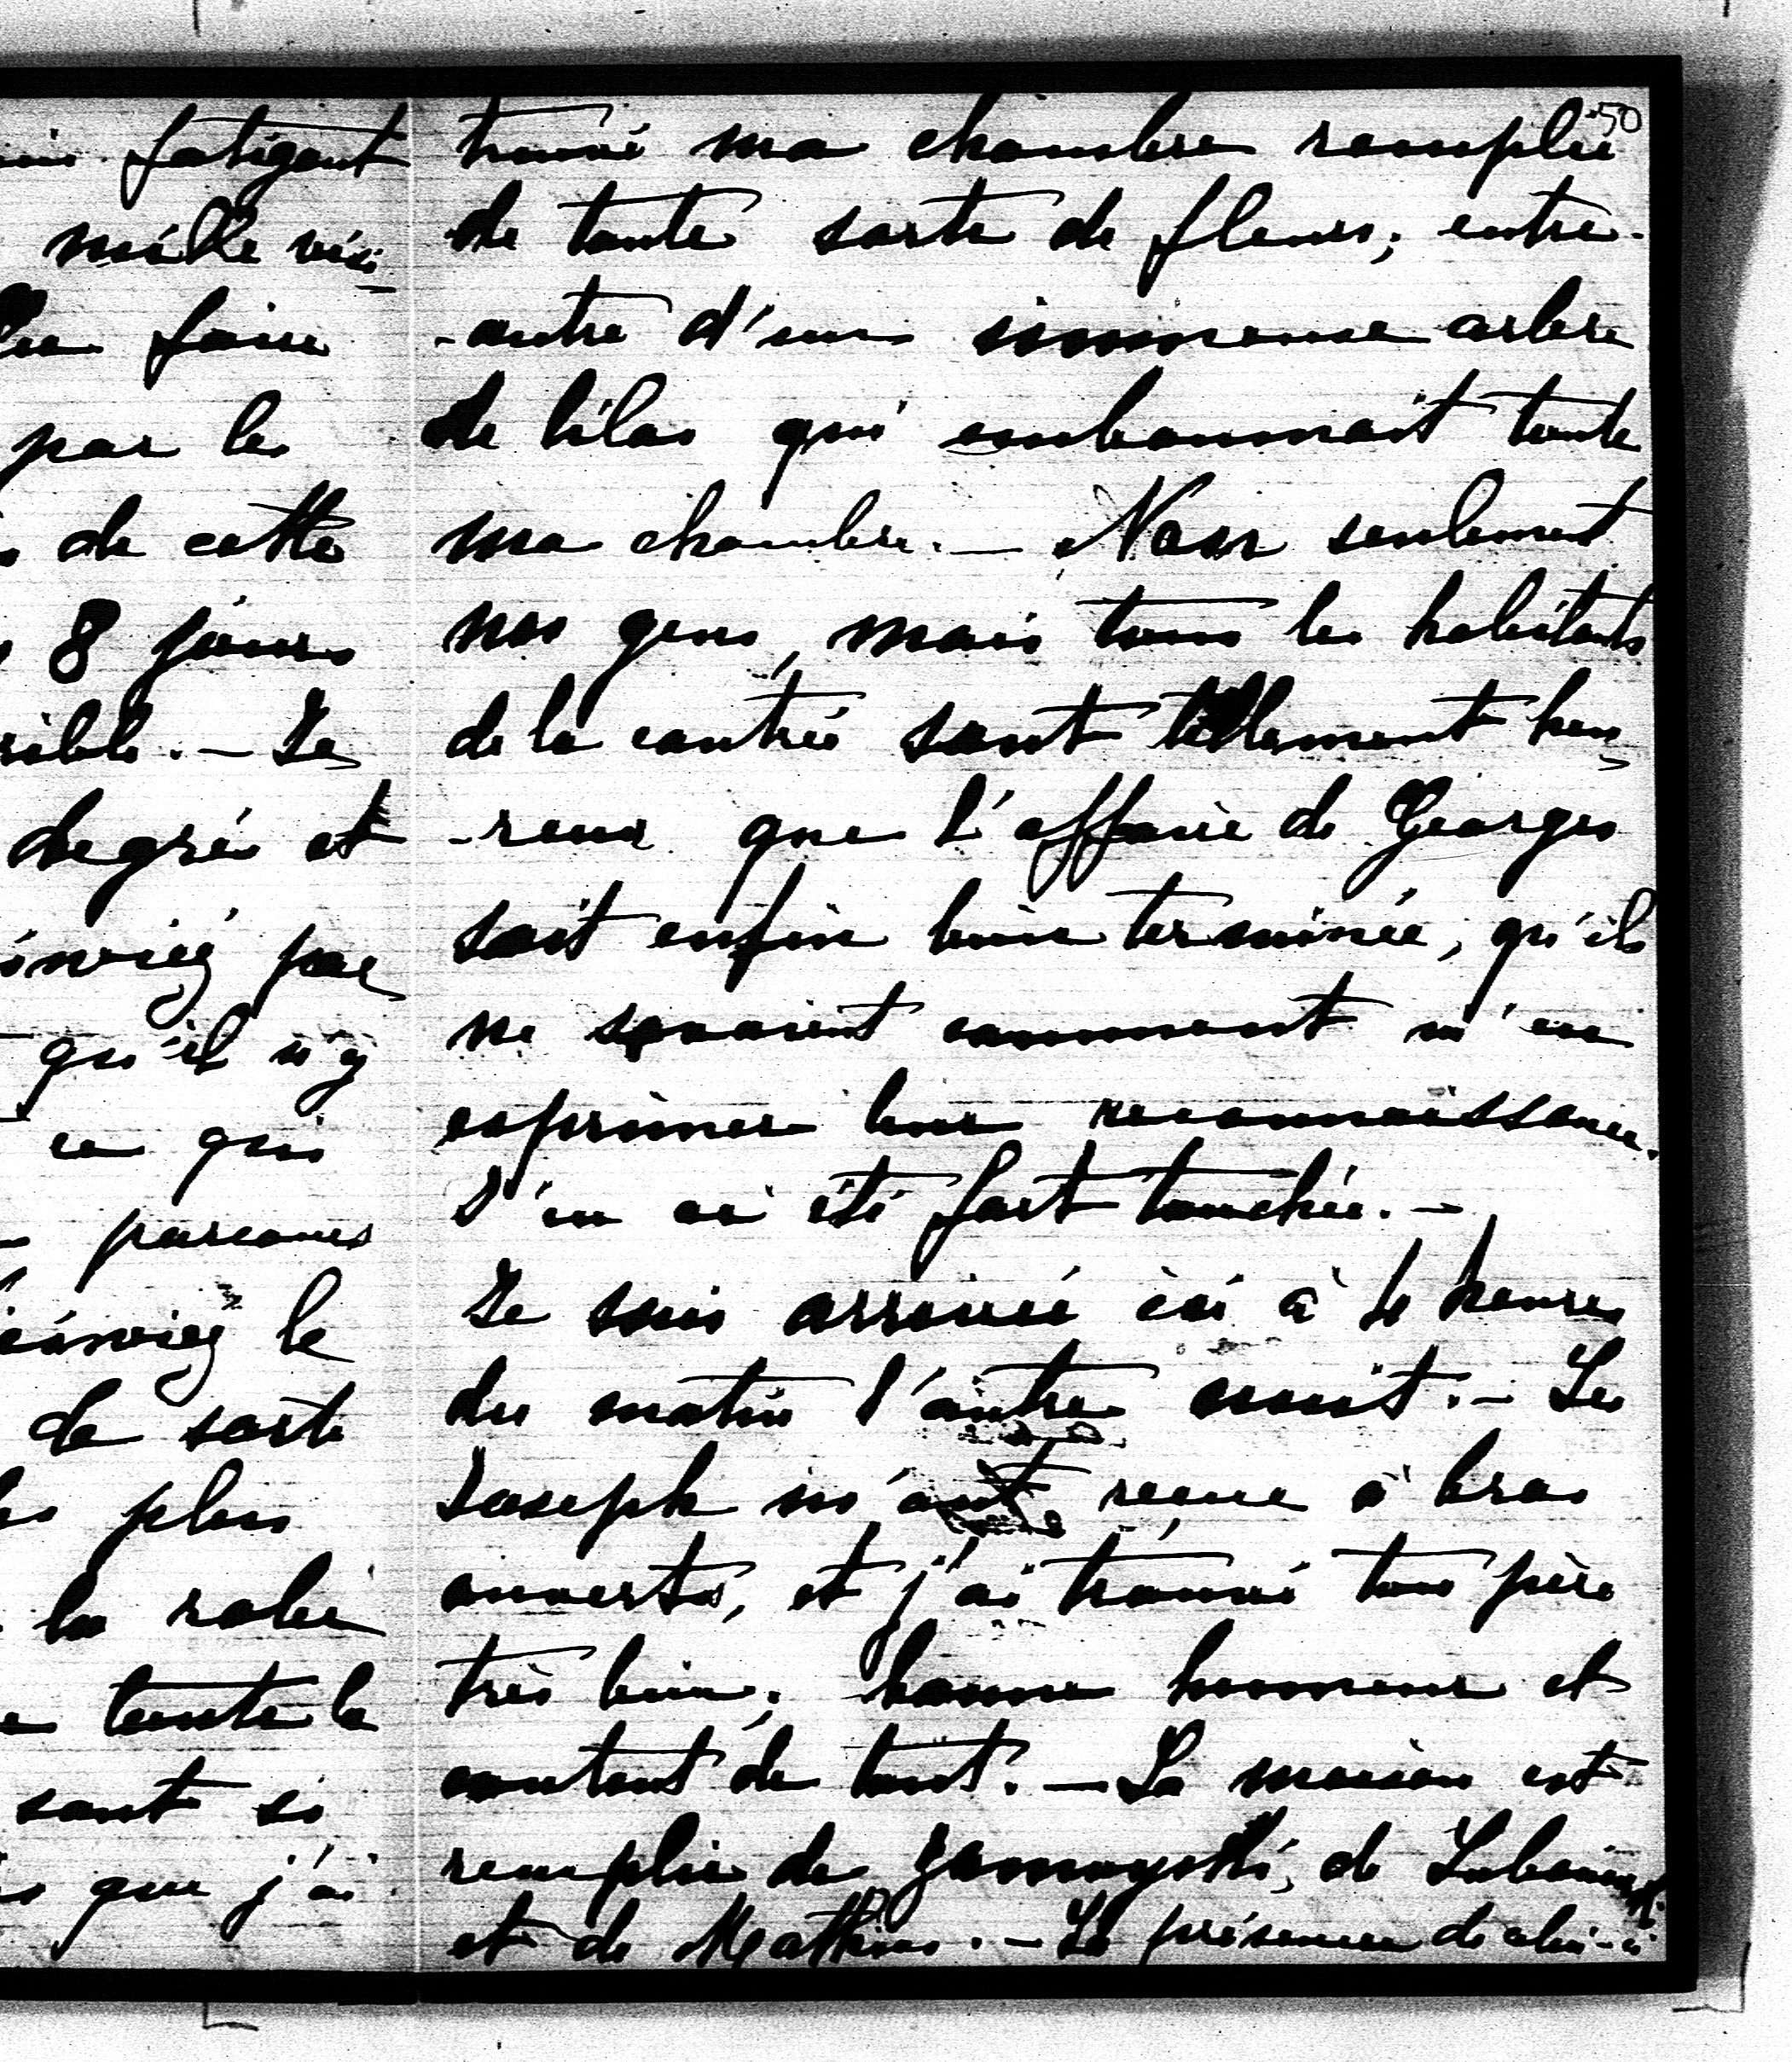 fatigant
mille visi-
faire
par les
de cette
8 jours
Je
degrés et
par
qu'il n'y
ce qui
parcours
le
de sorte
plus
la robe
toute la
sont si
que j'ai
50
trouvé ma chambre remplie
de toute sorte de fleurs; entre-
-autre d'un immense arbre
de lilas qui embaumait toute
ma chambre. — Non seulement
nos gens, mais tous les habitants
de la contrée sont tellement heu-
-reux que l'affaire de Georges
soit enfin bien terminée, qu'ils
ne savaient comment m'en
exprimer leur reconnaissance.
J'en ai été fort touchée. —
Je suis arrivée ici à 4 heures
du matin l'autre nuit. — Les
Joseph m'ont reçue à bras
ouverts, et j'ai trouvé ton père
très bien, bonne humeur et
content de tout. — La maison est
remplie de Zamoyski, de
et de — La présence de